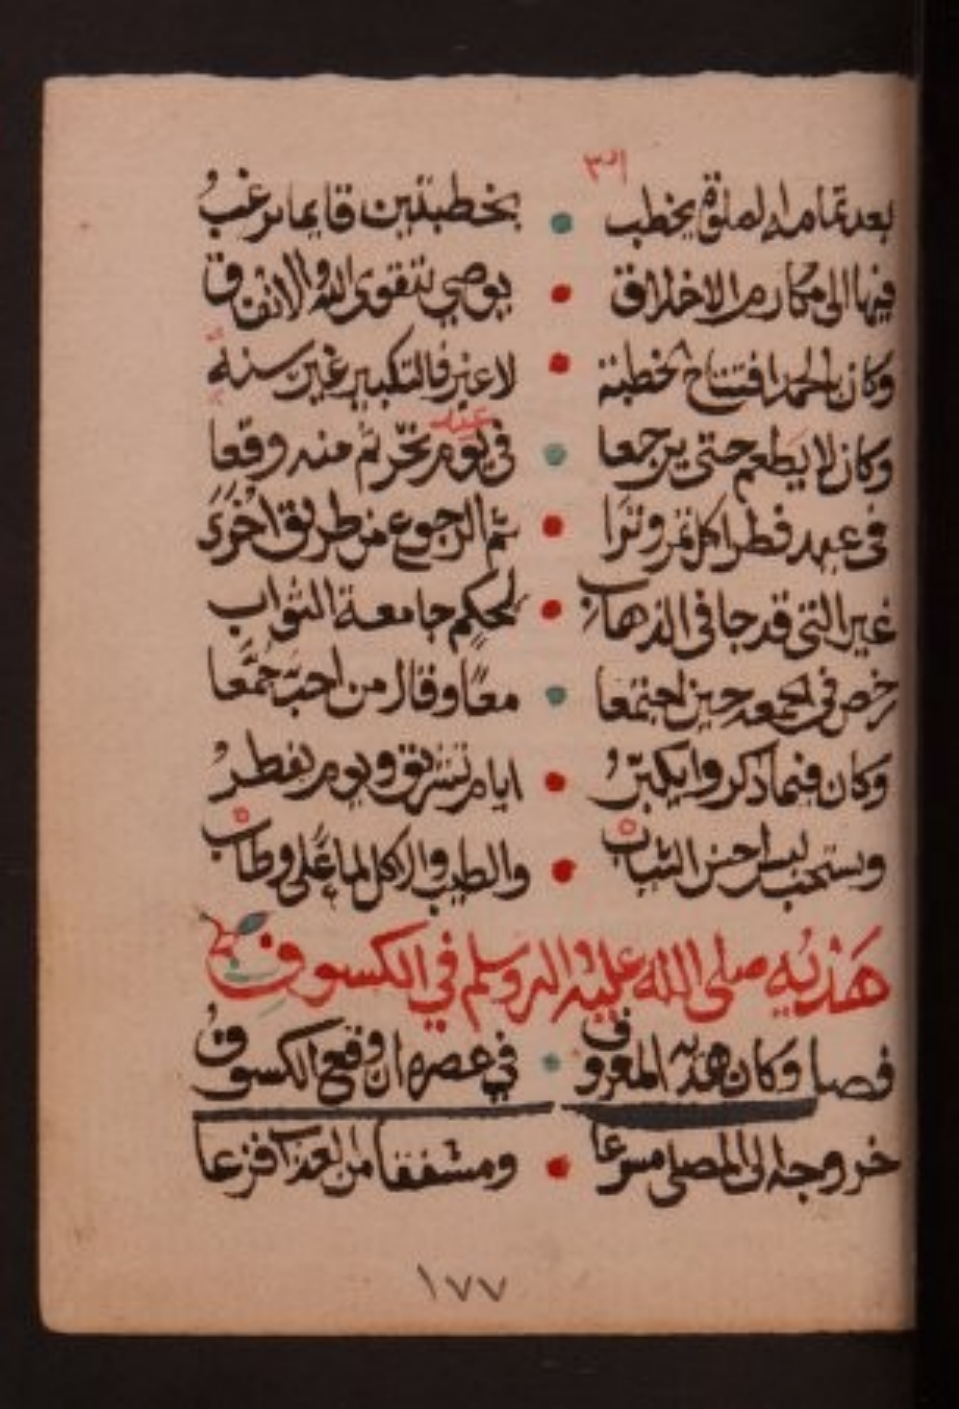 بعد تمامه الصلوة يخطب بخطبتين قايما يرغب
فيها الى مكارم الاخلاق يوصي بتقوى الله والانفاق
وكان بالحمد افتتاح الخطبة لا غير فالتكبير غير سنه
وكان لا يطعم حتى يرجعا في يوم نحر ثم منه وقعا
في عيد فطر اكل تمر وترا ثم الرجوع من طريق اخرى
غير التي قد جا في الذهاب لحكم جامعة الثواب
رخص في الجمعه حين اجتمعا معا وقال من احب جمعا
وكان فيما ذكروا يكبر ايام تشريق ويوم يفطر
ويستحب لبس احسن الثياب والطيب والاكل لما على وطاب
هديه صلى الله عليه واله وسلم في الكسوف
فصل وكان هديه المعروف في عصره ان وقع الكسوف
خروجه الى المصلى مسرعا ومشفقا من العذاب فزعا
١٧٧